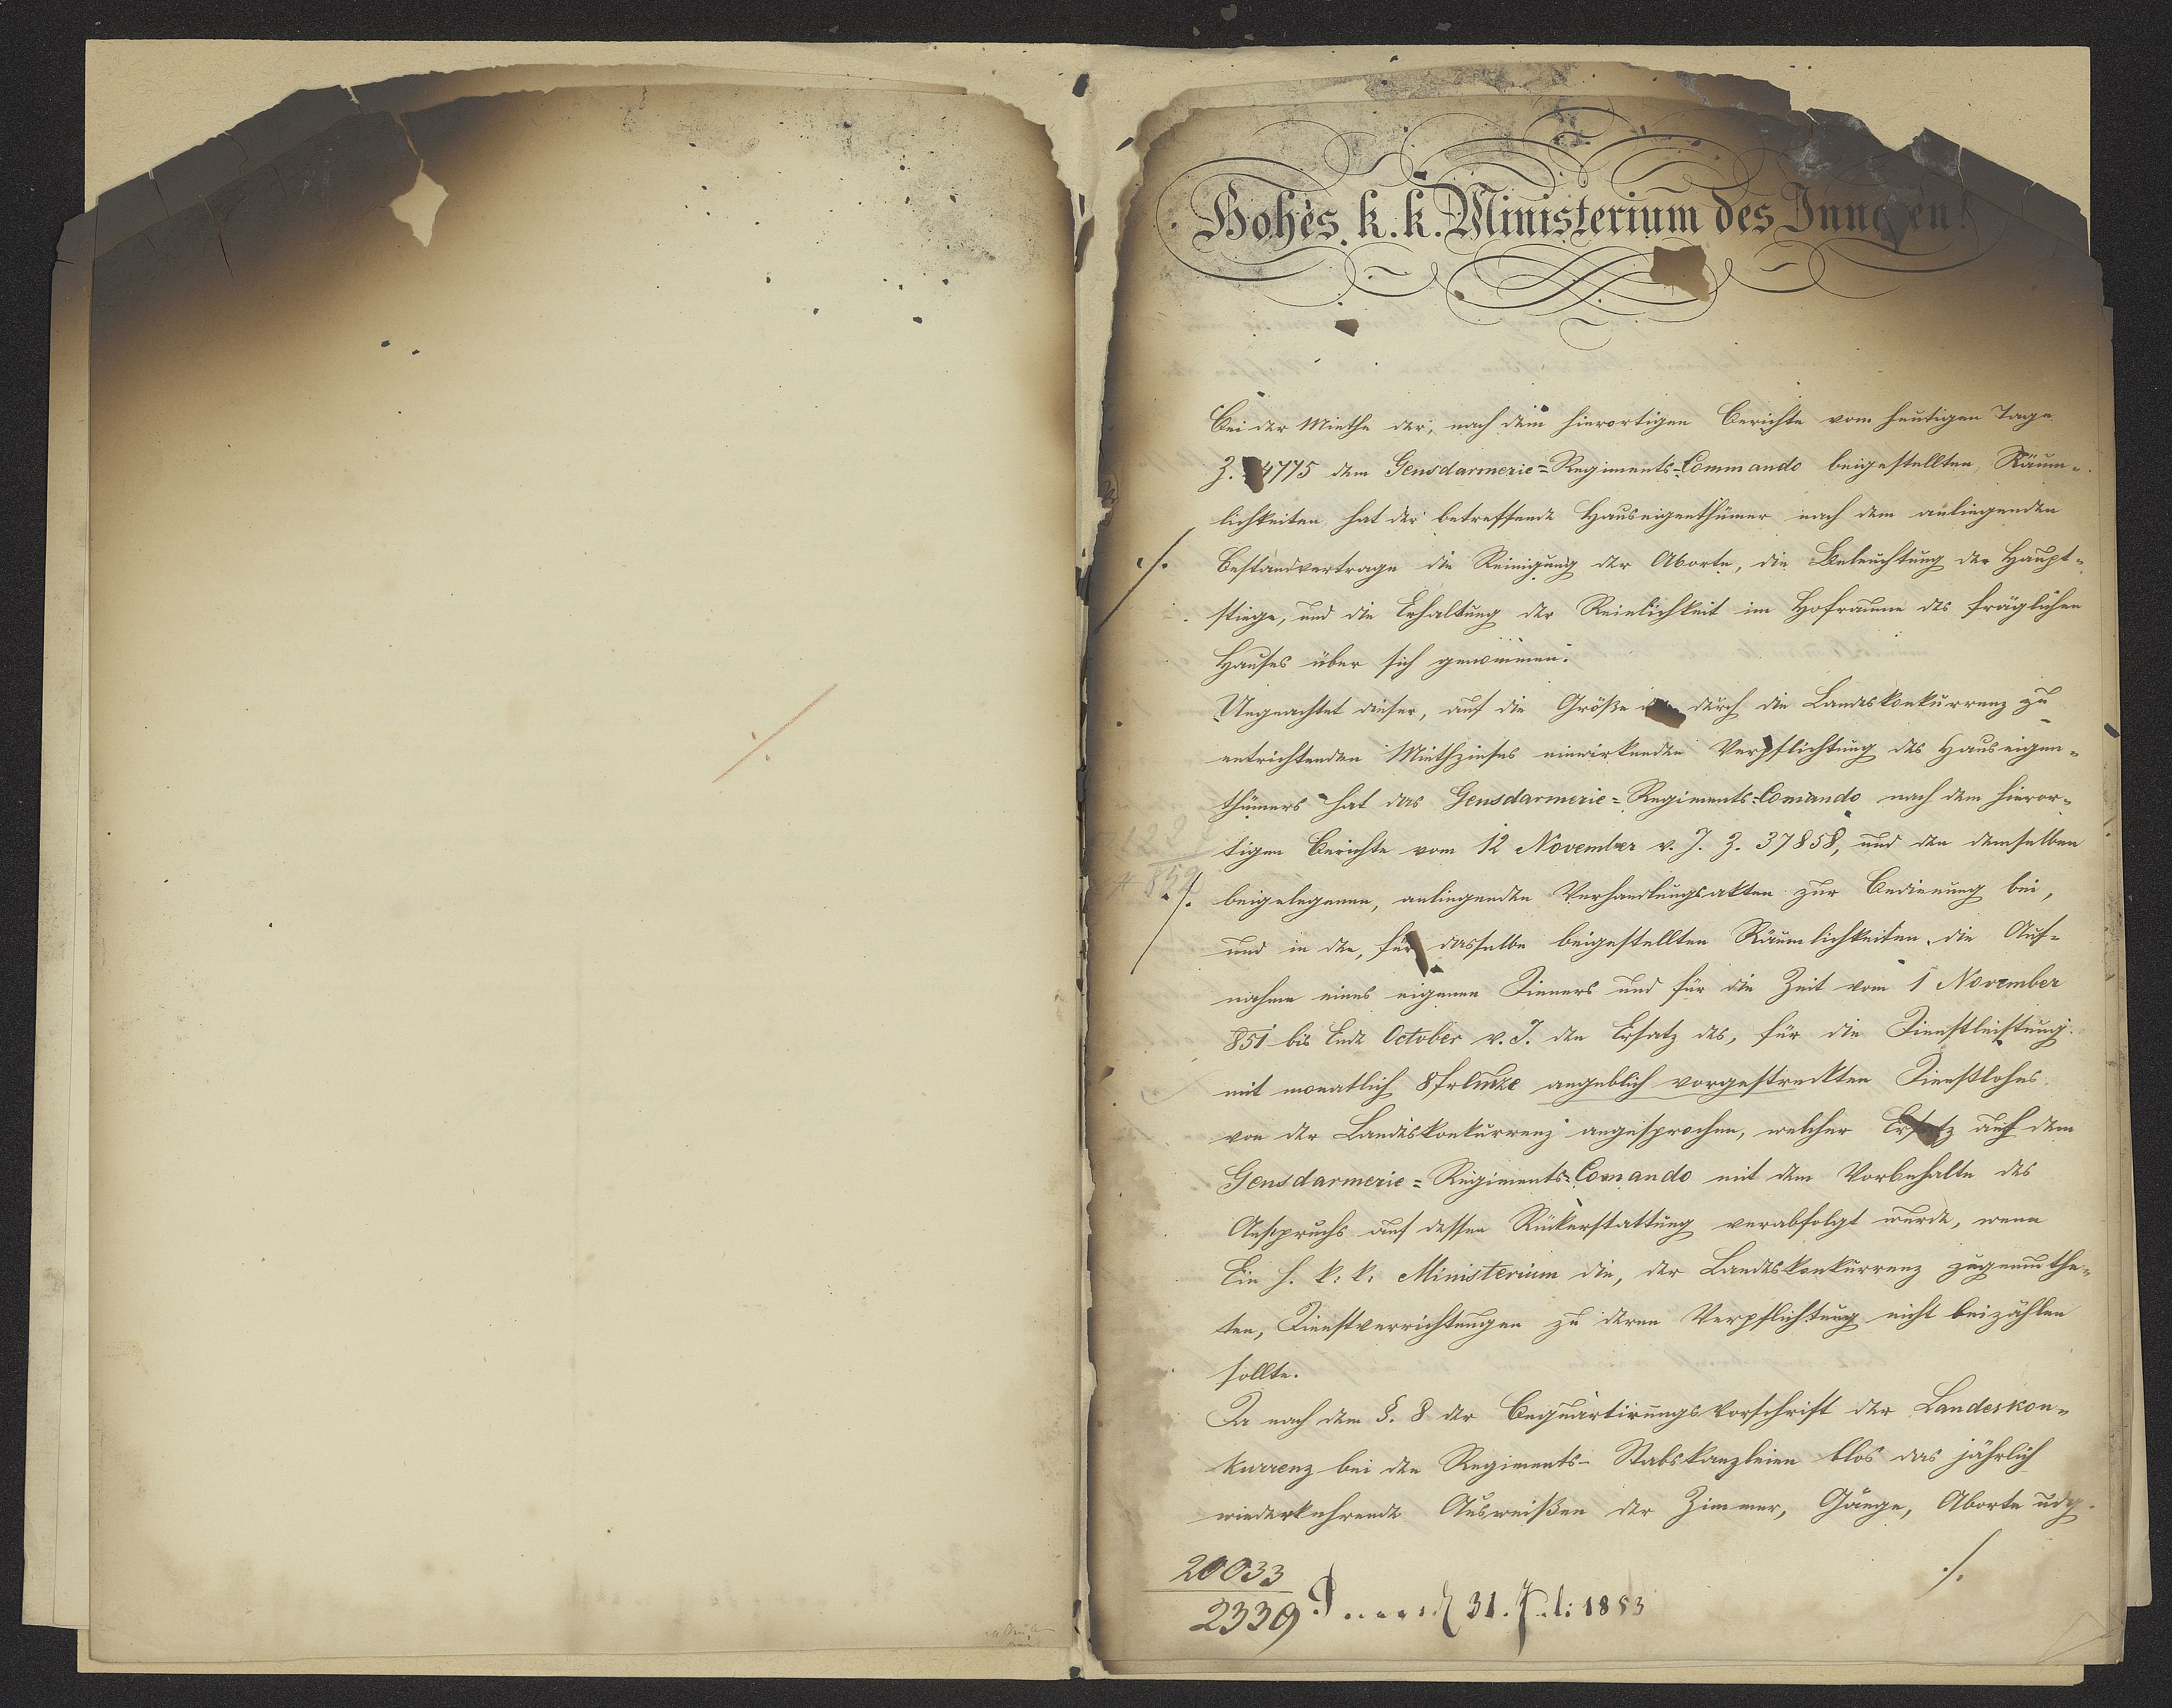 Hohes k. k. Ministerium des Inneren!
Bei der Miethe der, nach dem hierortigen Berichte vom heutigen Tage
Z. 4775 dem Gensdarmerie=Regiments-Commando beigestellten, Räum-
lichkeiten hat der betreffende Hauseigenthümer nach dem anliegenden
./. Bestandvertrage die Reinigung der Aborte, die Beleuchtung der Haupt-
stiege, und die Erhaltung der Reinlichkeit im Hofraume des fräglichen
Hauses über sich genommen.
Ungeachtet dieser, auf die Größe durch die Landeskonkurrenz zu
entrichtenden Miethzinses einwirkenden Verpflichtung des Hauseigen-
thümers hat das Gensdarmerie=Regiments-Comando nach dem hieror-
tigen Berichte vom 12 November v. J. Z. 37858, und den demselben
./. beigelegenen, anliegenden Verhandlungsakten zur Bedienung bei,
und in den, für dasselbe beigestellten Räumlichkeiten die Auf-
nahme eines eigenen Dieners und für die Zeit vom 1 November
851 bis Ende October v. J. den Ersatz des, für die Dienstleistung
mit monatlich 8f angeblich vorgestreckten Dienstlohns
von der Landeskonkurrenz angesprochen, welcher Ersatz auf dem
Gensdarmerie=Regiments-Comando mit dem Vorbehalte des
Anspruchs auf dessen Rückerstattung verabfolgt wurde, wenn
Ein h. k. k. Ministerium die, der Landeskonkurrenz zugemuthe-
ten, Dienstverrichtungen zu deren Verpflichtung nicht beizählen
sollte.
Da nach dem §. 8 der Bequartirungsvorschrift der Landeskon-
kurrenz bei den Regiments-Stabskanzleien blos das jährlich
wiederkehrende Ausweißen der Zimmer, Gänge, Aborte udg.
./.
20033
2339 31. Juli 1853